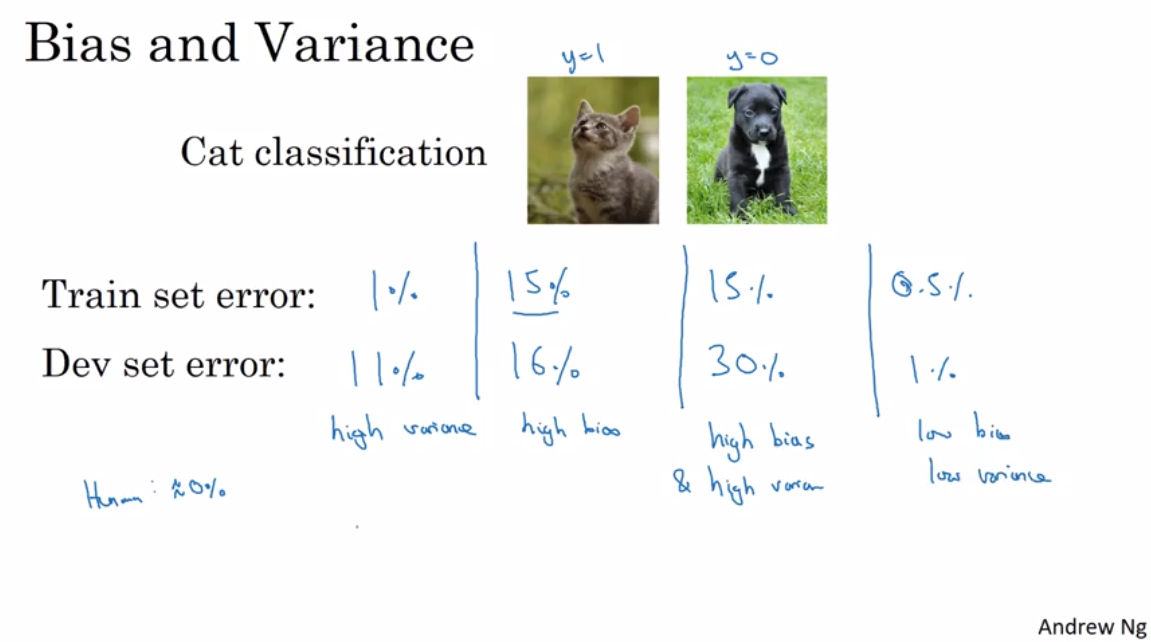 Bias and Variance
y=1 y=0
Cat classification
Train set error: 1% 15% 15% 0.5%
Dev set error: 11% 16% 30% 1%
high variance high bias high bias low bias
& high varian low variance
Human: ≈0%
Andrew Ng